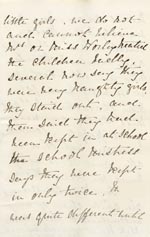 little girls. we do not
and cannot believe
Mrs or Miss Worley treated
the children badly,
several now say they
were very naughty girls
they said out, and
then said they had
been kept in at school
the School Mistress
says they were kept
in only twice. It
was quite different with